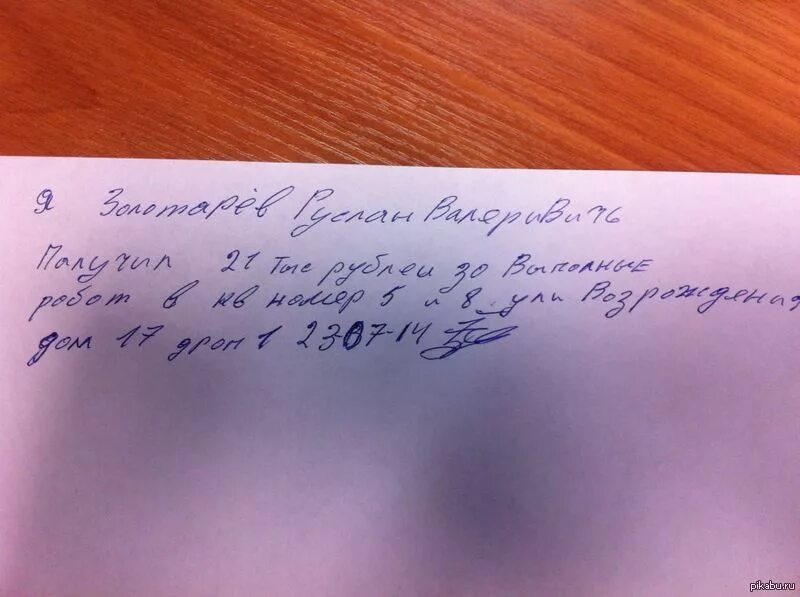 Я Золотарёв Руслан ВалериВичь
Палучил 21 тыс рублей зо Выполные
робот в кв номер 5 и 8 ули Возрождения
дом 17 дроп 1 23-07-14
pikabu.ru